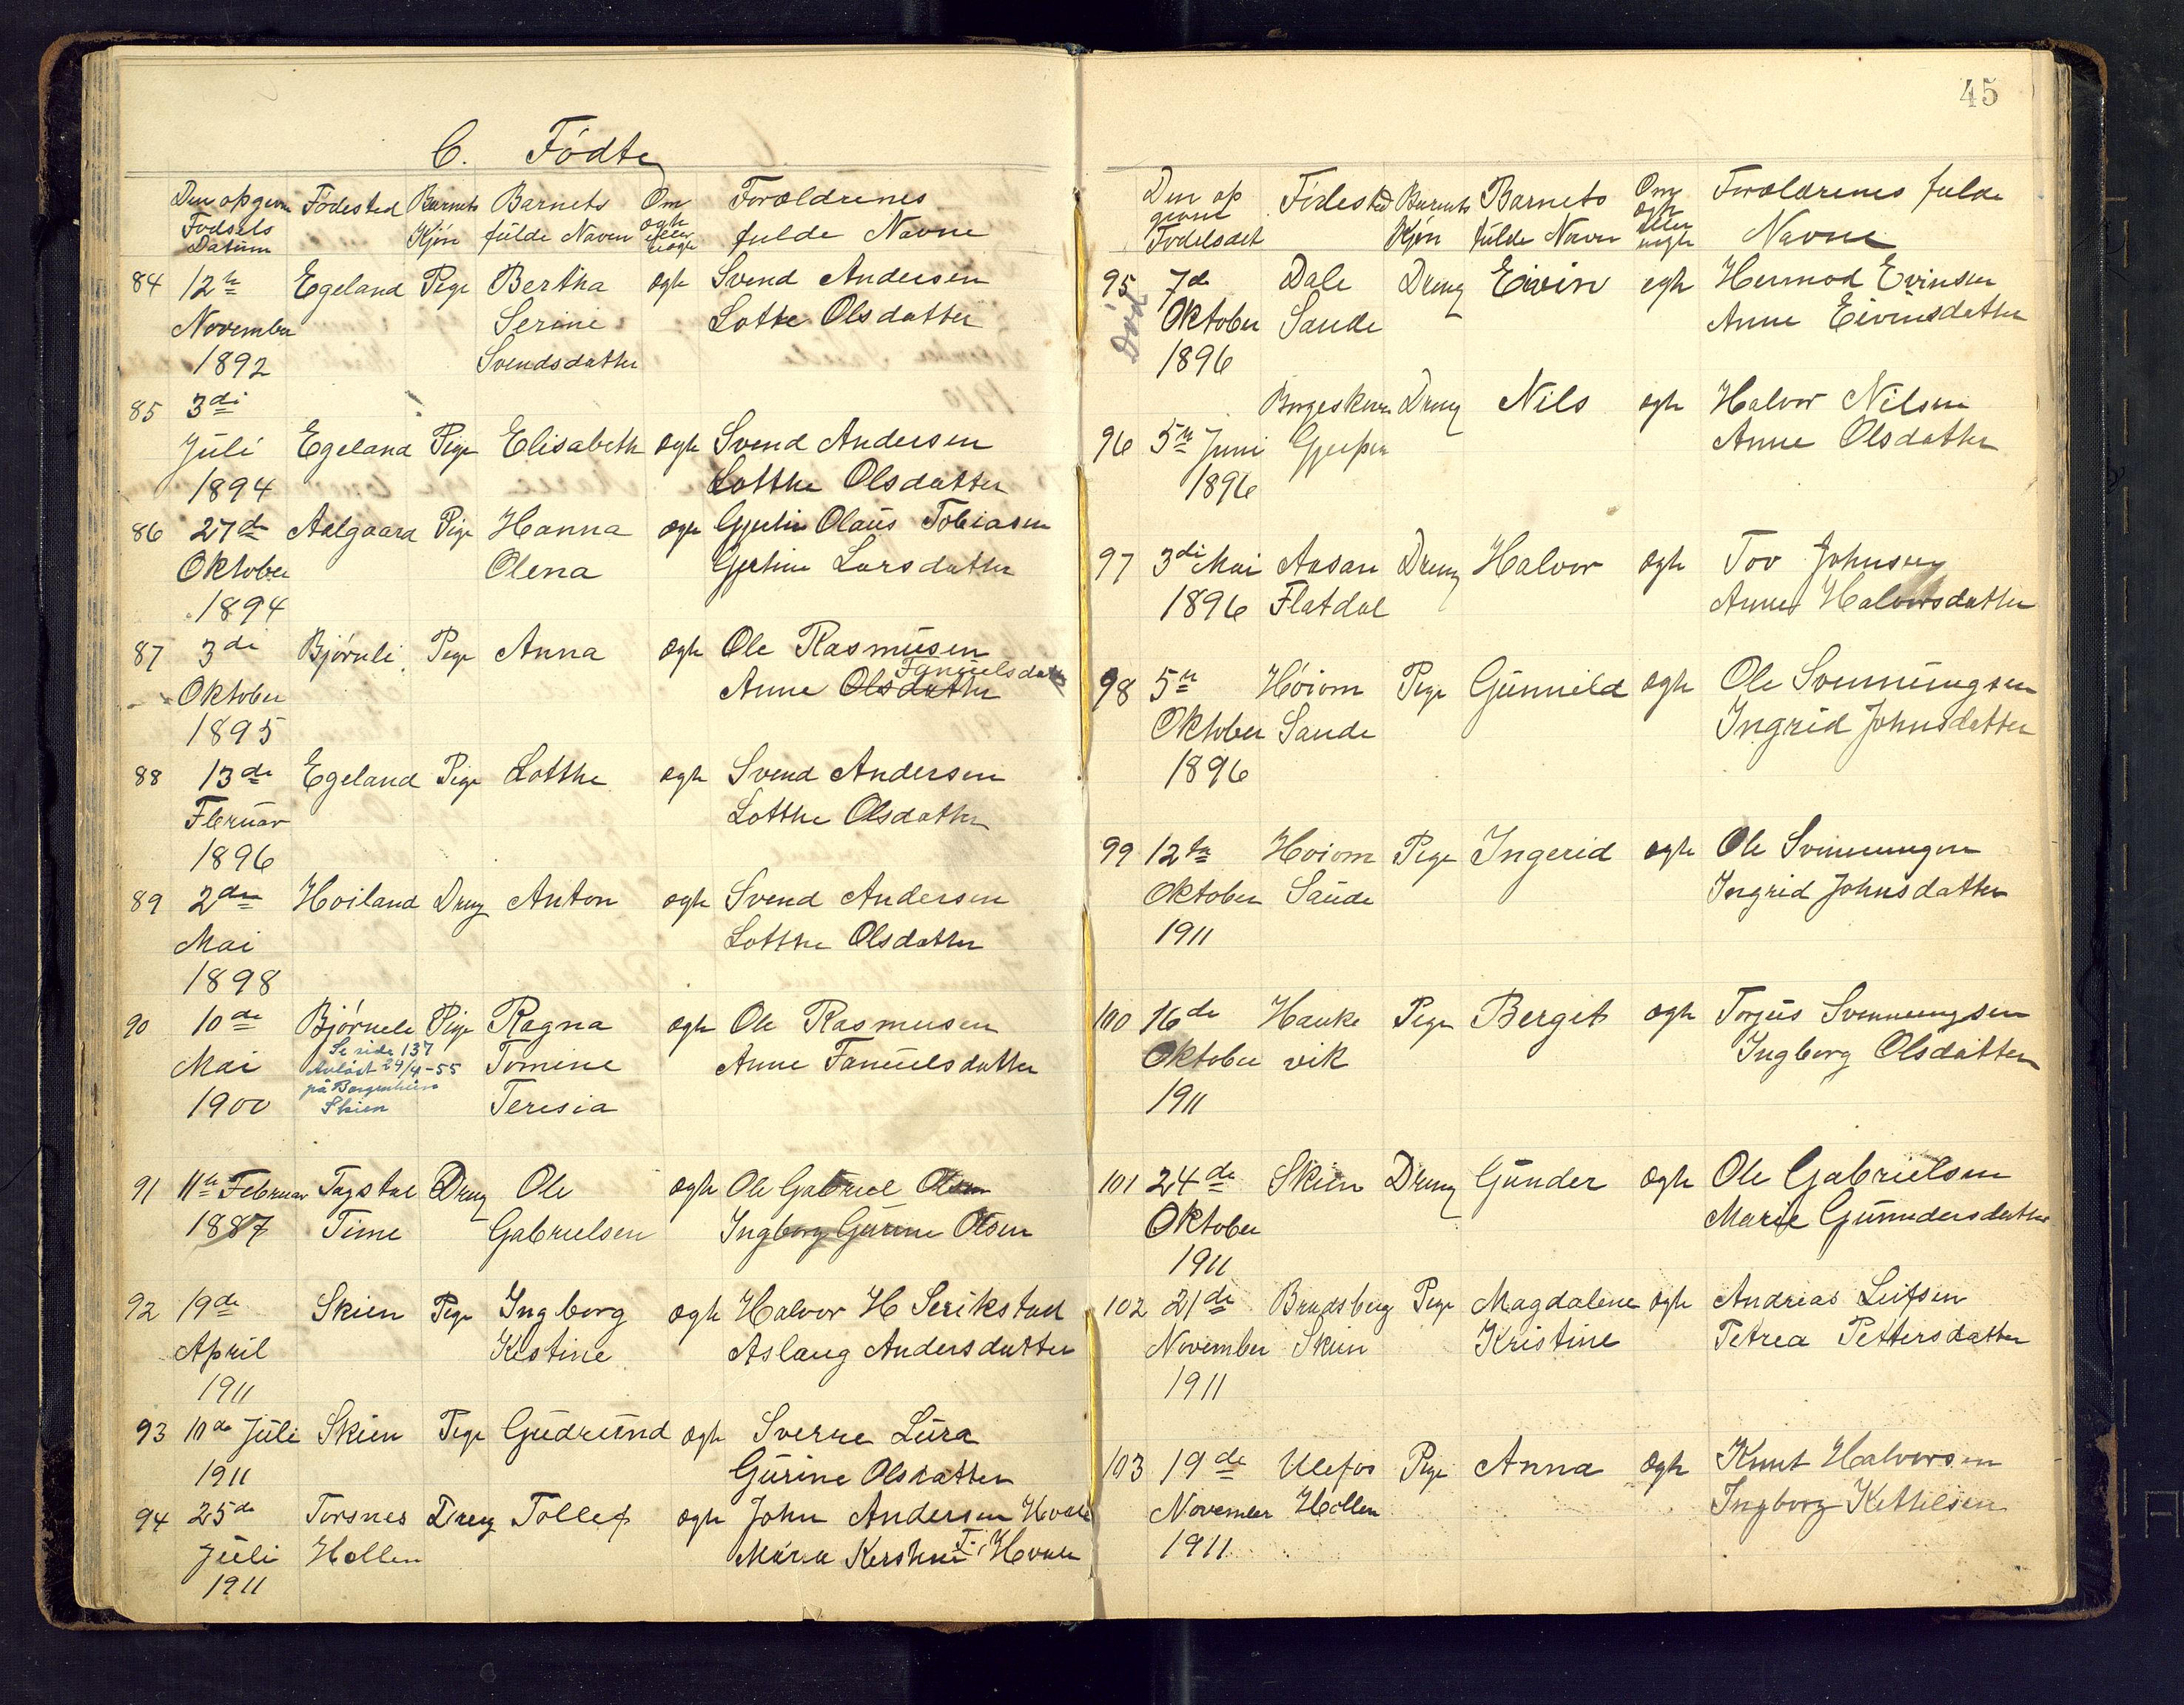 C. Födte
Den opgivne Födested Barnets Barnets Om Forældrenes
Födsels Kjön fulde Navn ægte eller uægte fulde Navne
Datum
84 12te Egeland Pige Bertha ægte Svend Andersen
November Serine Lotthe Olsdatter
1892 Svendsdatter
85 3di
Juli Egeland Pige Elisabeth ægte Svend Andersen
1894 Lotthe Olsdatter
86 27de Aalgaard Pige Hanna ægte Gjertin Olaus Tobiasen
Oktober Olena Gjertine Larsdatter
1894
87 3di Björneli Pige Anna ægte Ole Rasmusen
Fanuelsdatter
Oktober Anne Olsdatter
1895
88 13de Egeland Pige Lotthe ægte Svend Andersen
Februar Lotthe Olsdatter
1896
89 2den Hoiland Dreng Anton ægte Svend Andersen
Mai Lotthe Olsdatter
1898
90 10de Björnele Pige Ragna ægte Ole Rasmusen
Mai Se side 137 Tomine Anne Fanuelsdatter
Avløst 24/4-55
på Borgeåsen
1900 Skien Teresia
91 11te Februar Tagstal Dreng Ole ægte Ole Gabriel Olsen
1887 Time Gabrielsen Ingborg Gurine Olsen
92 19de Skien Pige Ingborg ægte Halvor H Serikstad
April Kistine Aslaug Andersdatter
1911
93 10de Juli Skien Pige Gudrund ægte Sverre Lura
1911 Gurine Olsdatter
94 25de Torsnes Dreng Tollef ægte John Andersen Hvale
Juli Hollen Mara Kerstine T. Hvale
1911
45
Den op Födested Barnets Barnets Om Forældrenes fulde
givne Kjön fulde Navn ægte eller uægte Navne
Födelsdat
95 7de Dale Dreng Eivin ægte Hermod Evinsen
Död Oktober Saude Anne Eivinsdatter
1896
Dreng Nils ægte Halvor Nilsen
96 5te Juni Gjerpen Anne Olsdatter
1896
97 3di Mai Aasan Dreng Halvor ægte Tov Johnsen
1896 Flatdal Anne Halvorsdatter
98 5te Höiom Pige Gunnild ægte Ole Svenningsen
Oktober Saude Ingrid Johnsdatter
1896
99 12te Hoiom Pige Ingerid ægte Ole Svinnungen
Oktober Saude Ingrid Johnsdatter
1911
100 16de Hauke Pige Berget ægte Torjus Svenningsen
Oktober vik Ingborg Olsdatter
1911
101 24de Skien Dreng Gunder ægte Ole Gabrielsen
Oktober Marie Gunndersdatter
1911
102 21de Bradsberg Pige Magdalene ægte Andreas Leifsen
November Skien Kristine Petrea Pettersdatter
1911
103 19de Ulefos Pige Anna ægte Knut Halvorsen
November Hollen Ingborg Kettilsen
1911